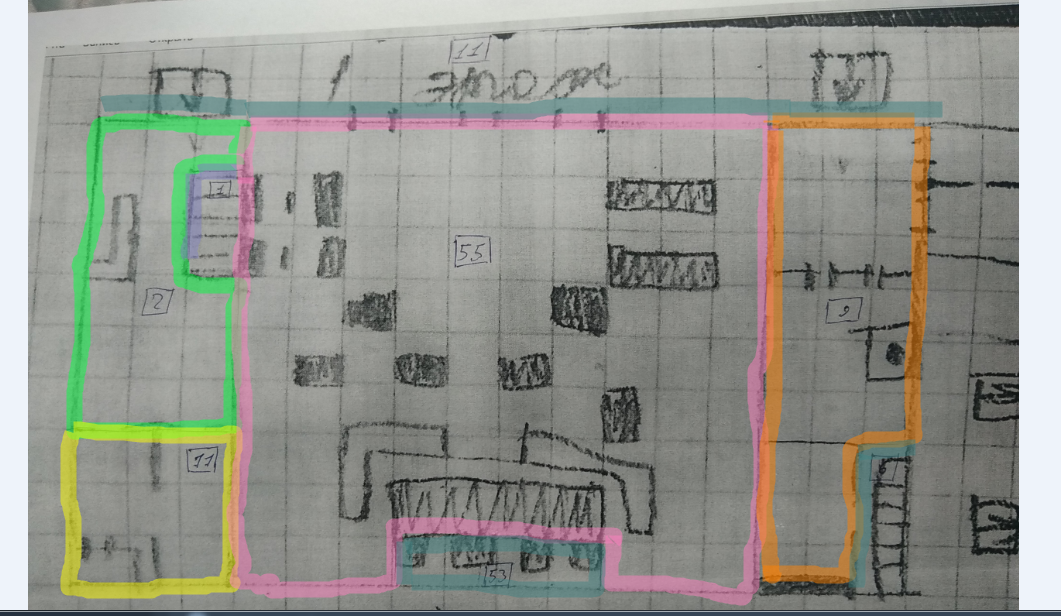 11
1 этаж
1
55
2
9
11
53